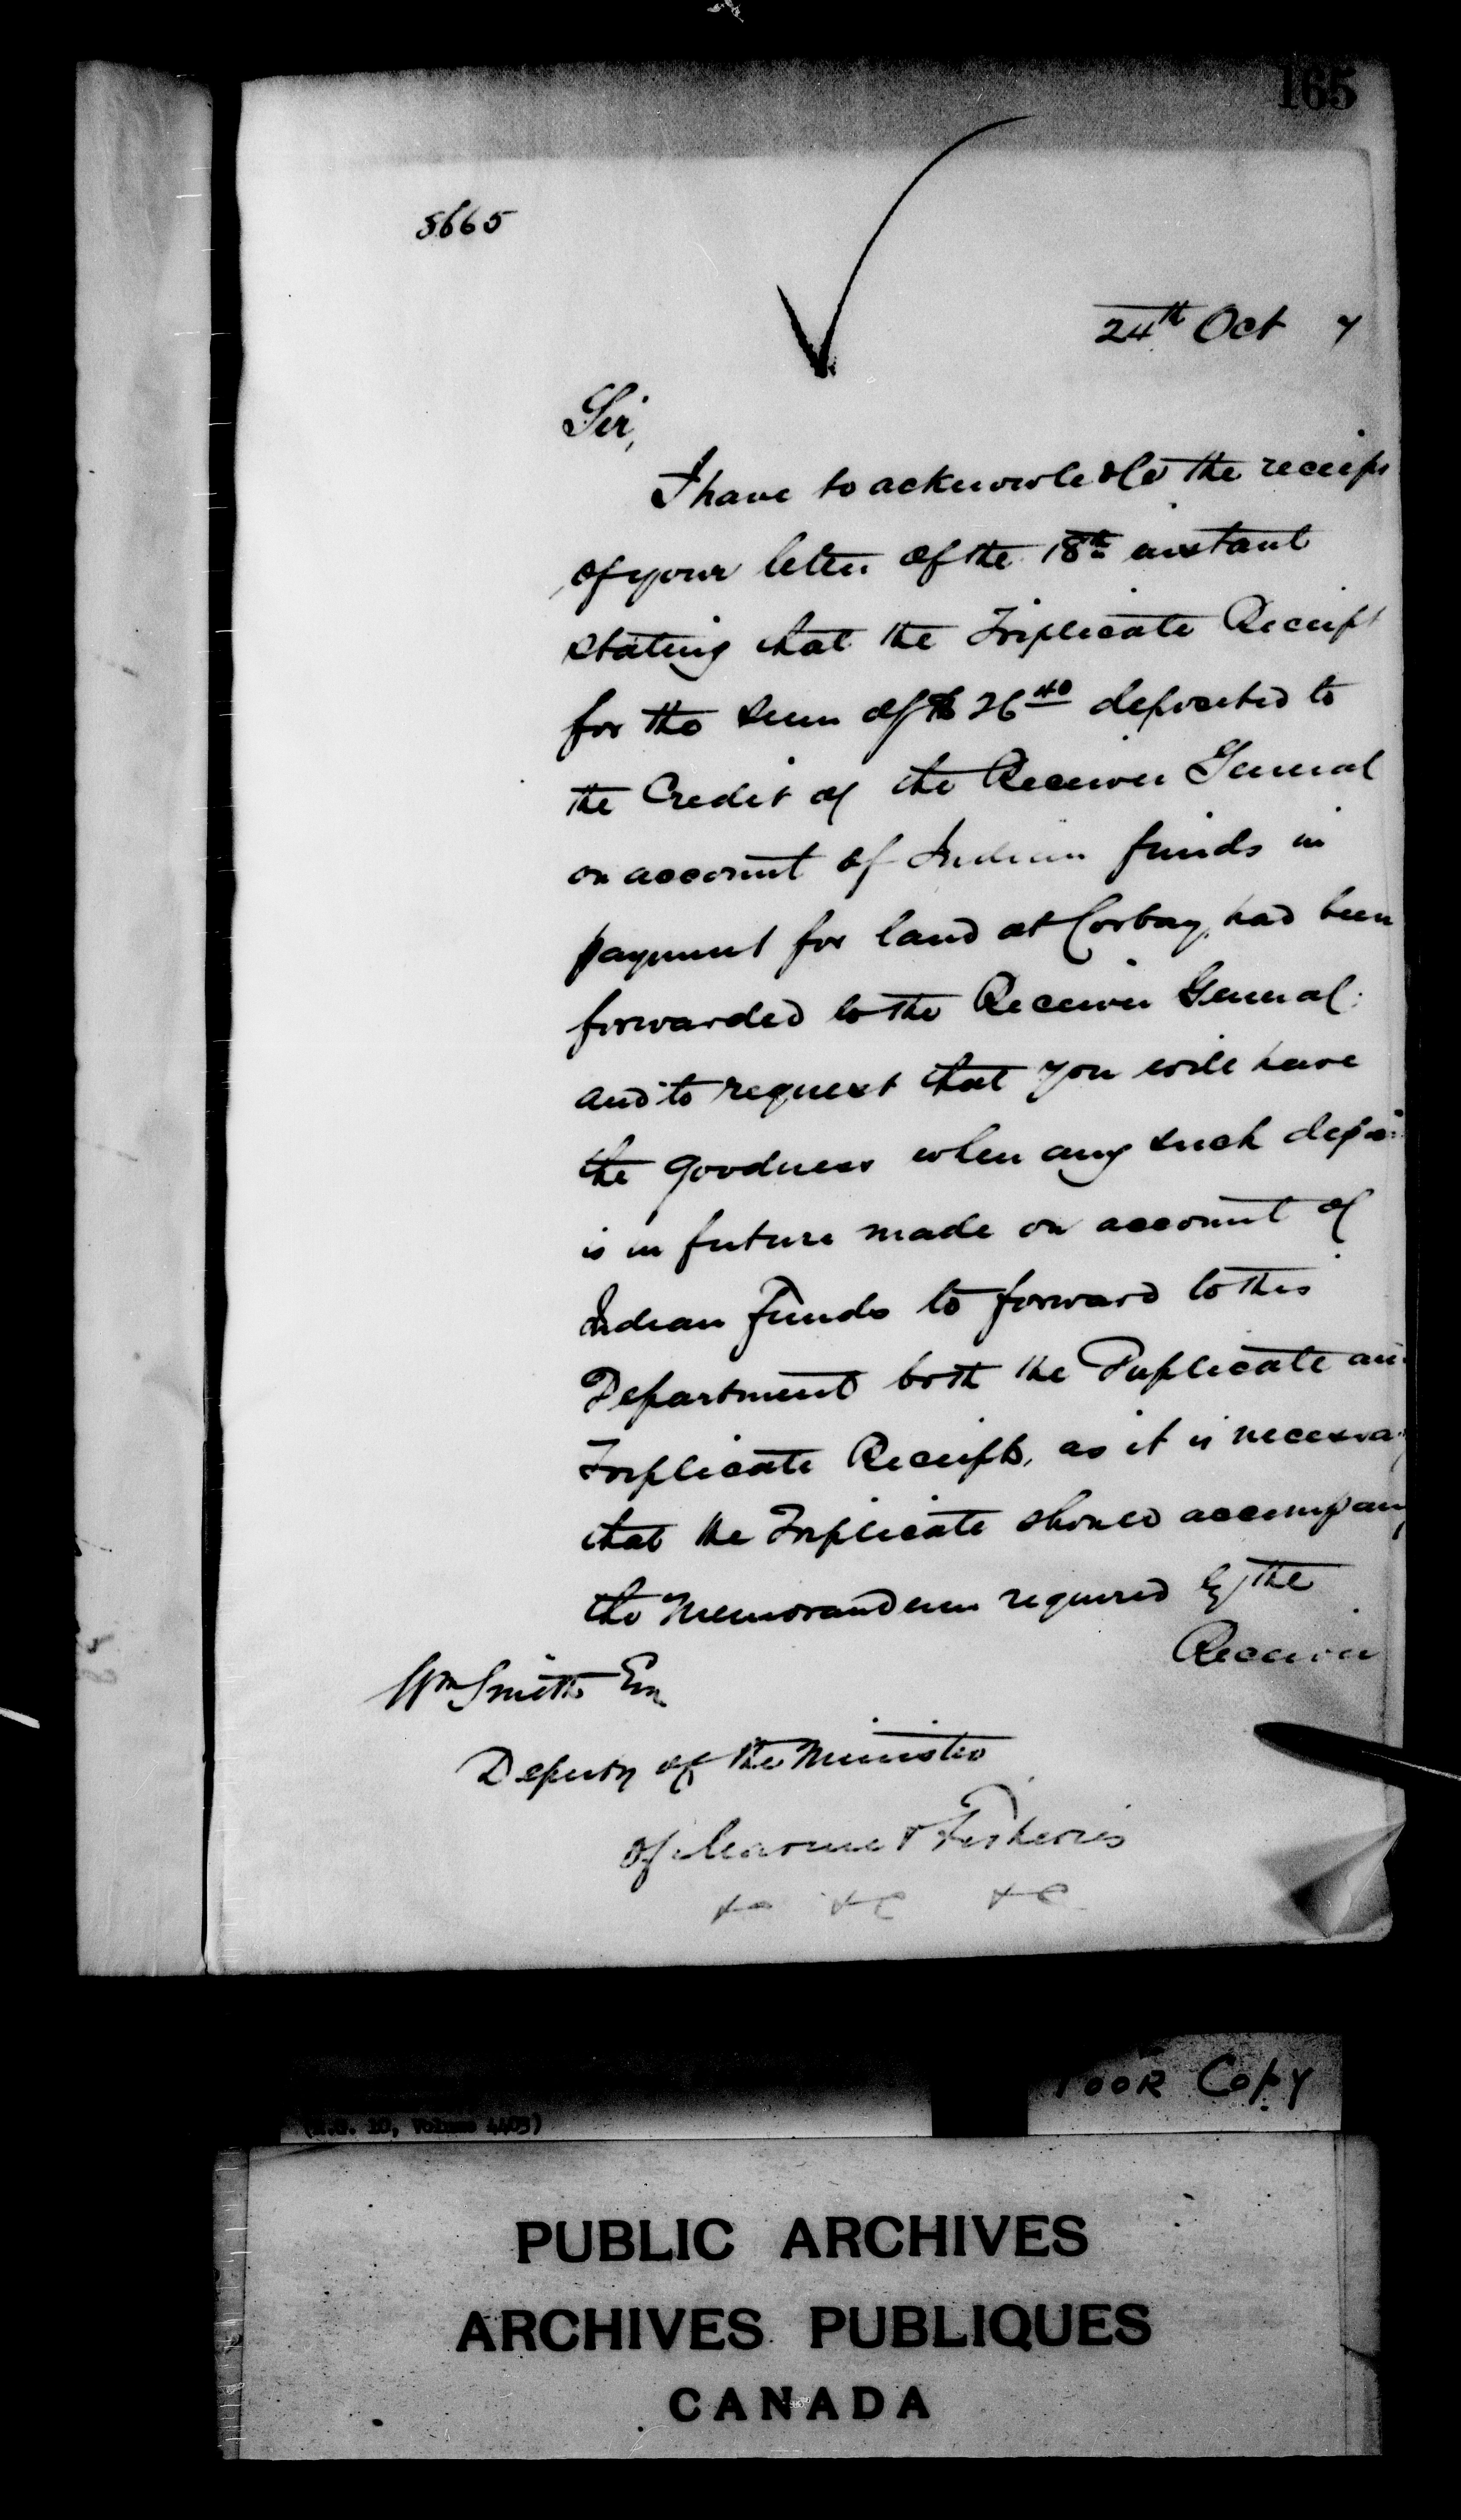 165
5665
24th Oct 7
Sir,
I have to acknowledge the receipt
of your letter of the 18th instant
stating that the Triplicate Receipt
for the sum of $26 40 deposited to
the Credit of the Receiver General
on account of Indian funds in
payment for land at Corbay, had been
forwarded to the Receiver General;
and to request that you will have
the goodness when any such depos
is in future made on account of
Indian Funds to forward to this
Department both the Duplicate an
Triplicate Receipts, as it is necessa
that the Triplicate should accompany
the Memorandum required by the
Receiver
Wm Smith Esq
Deputy of the Minister
of Marine & Fisheries
&c &c &c
Poor Copy
(R.G. 10, Volume 4403)
PUBLIC ARCHIVES
ARCHIVES PUBLIQUES
CANADA